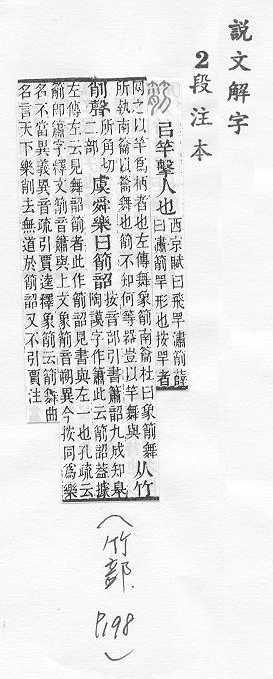 說文解字
2段注本
箾
㠯竿擊人也
西京賦曰飛罕潚箾薛
曰潚箾罕形也按罕者
网之以竿爲柄者也左傳舞象箾南籥杜曰象箾舞
所執南籥以籥舞也箾不知何等器豈以竿舞與
从竹
箾聲
所角切
二部
虞舜樂曰箾韶
按音部引書簫韶九成知臯
陶謨字作簫此云箾葢據
左傳左云見舞韶箾者此作箾韶見書與左一也孔疏云
箾卽簫字釋文箾音簫與上文象箾音朔異今按同爲樂
名不當異義異音疏引賈逵釋象箾云箾舞曲
名言天下樂削去無道於箾韶又不引賈注
(竹部. P.198)